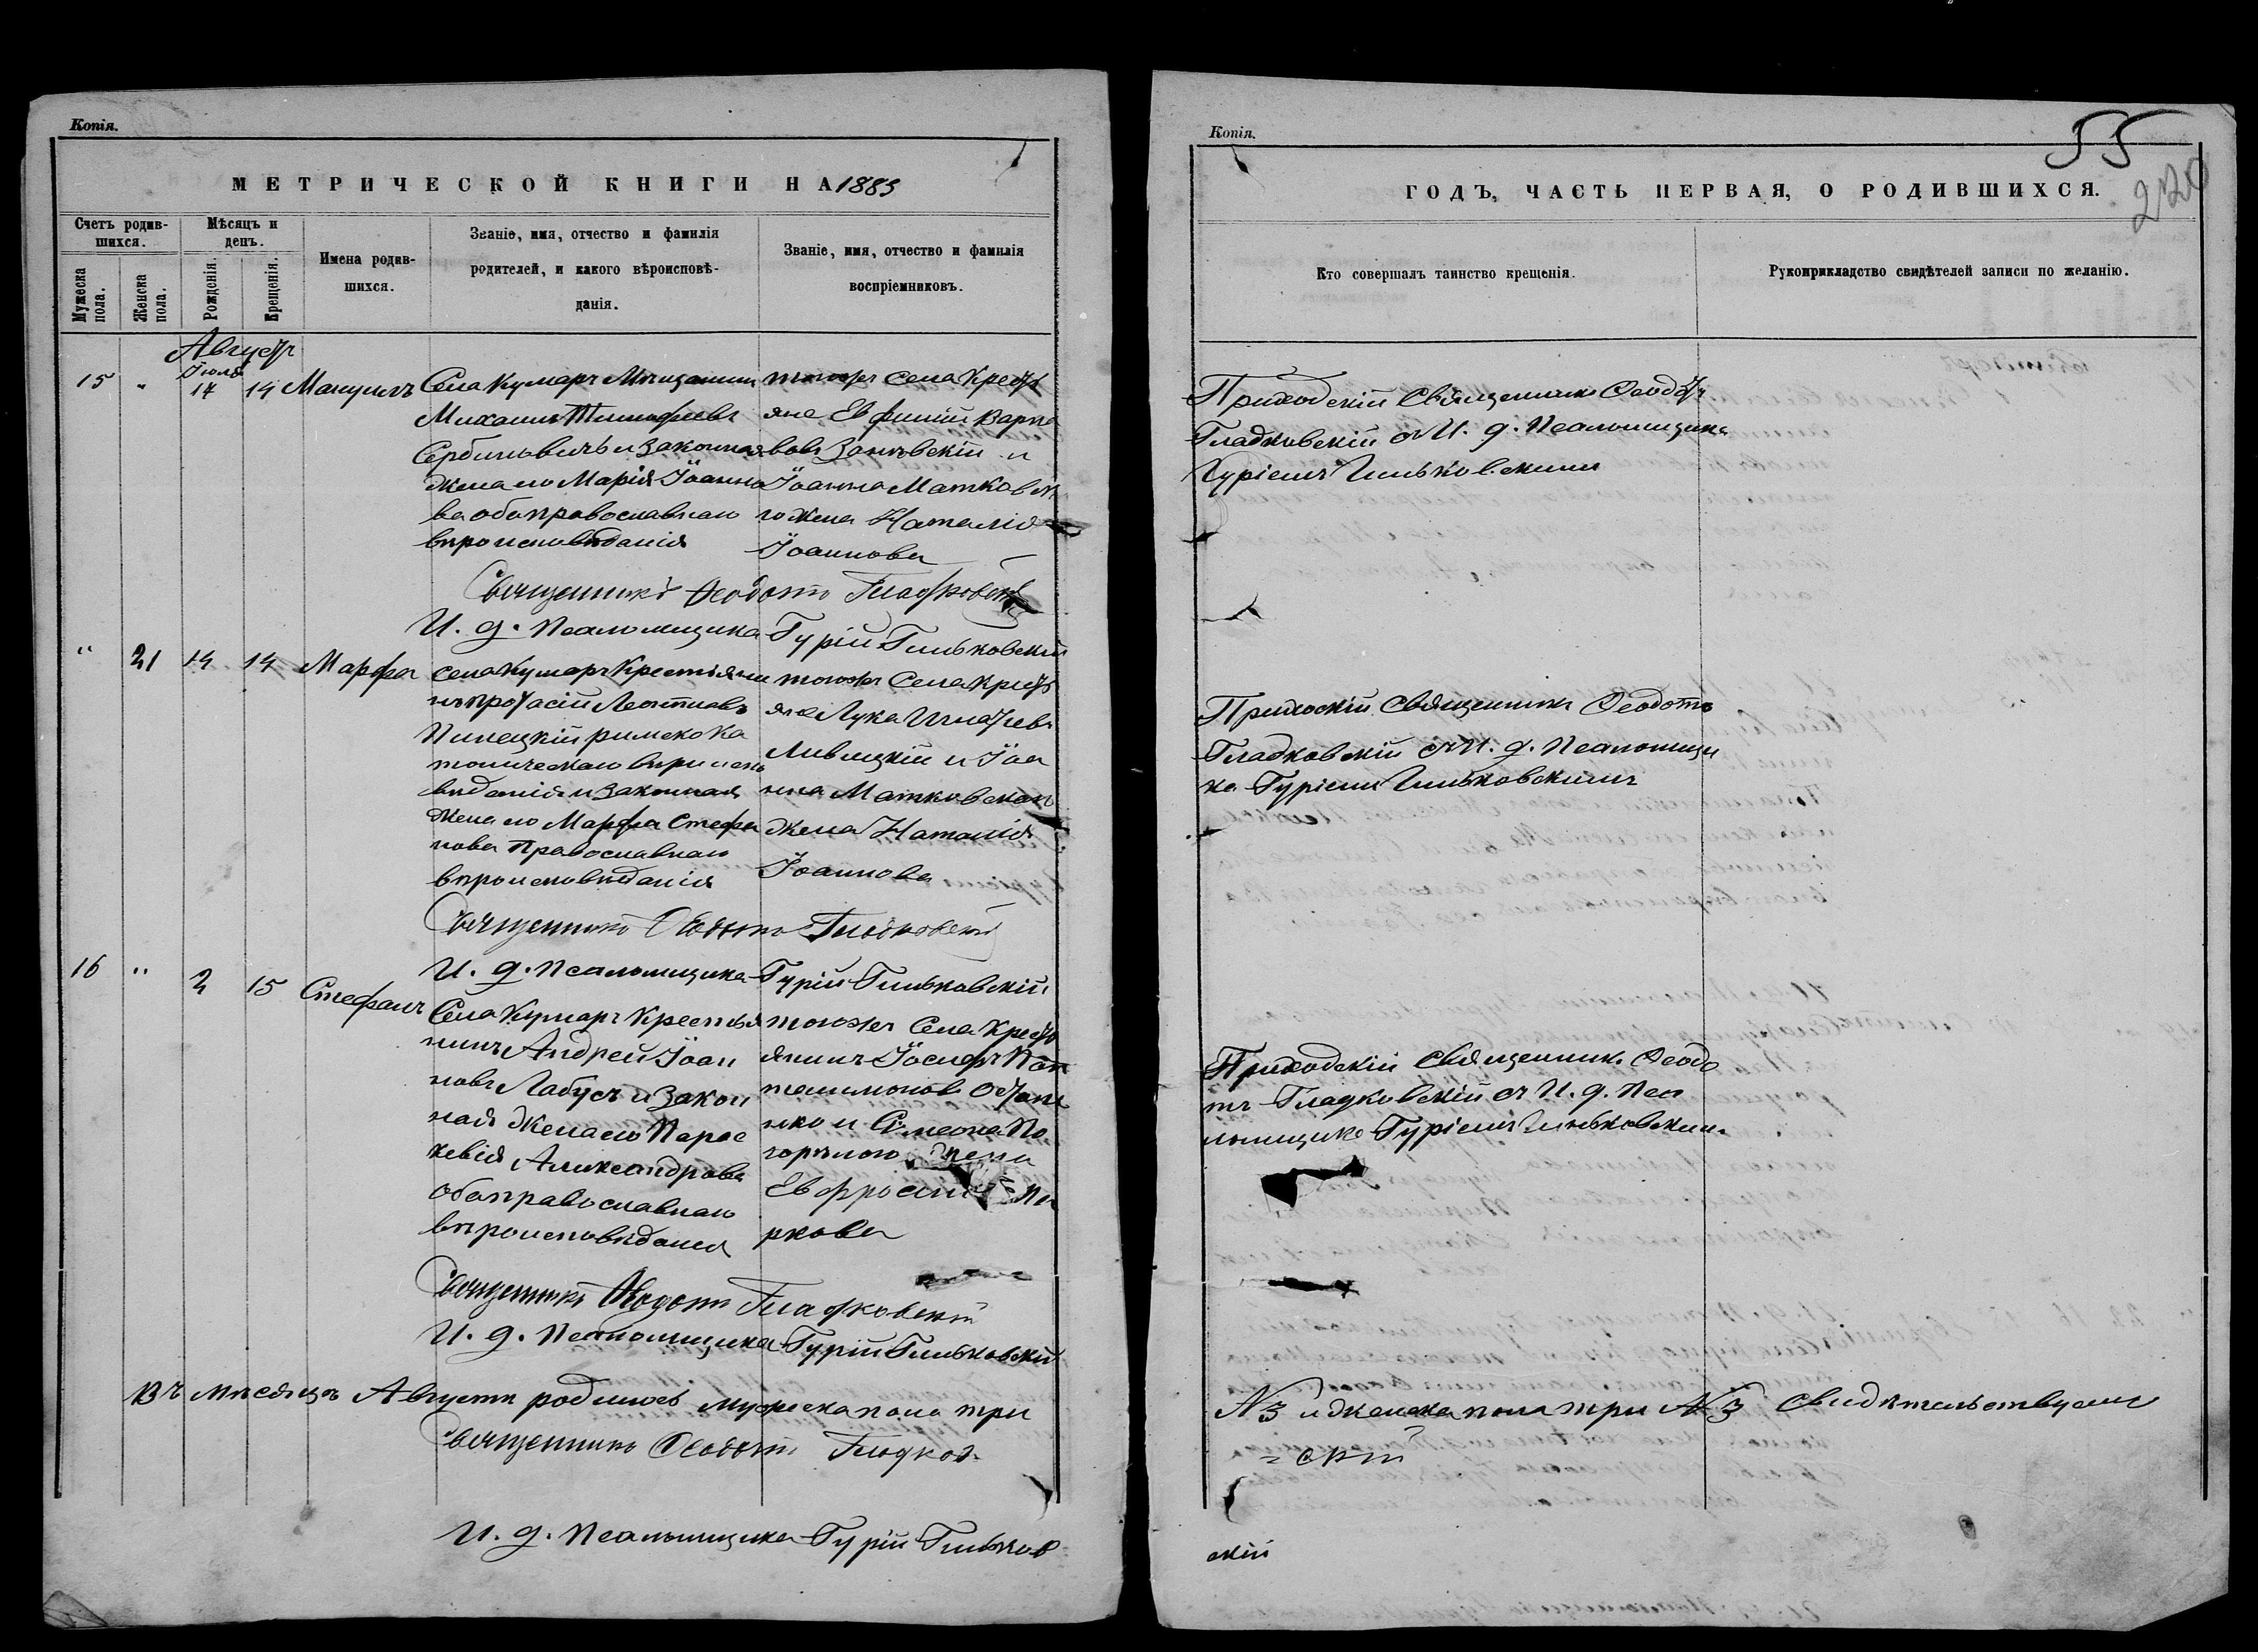 Копія.
МЕТРИЧЕСКОЙ КНИГИ НА 1885
Счетъ родив-
шихся.
Мѣсяцъ и
день.
Мужеска
пола.
Женска
пола.
Рожденія.
Крещенія.
Имена родив-
шихся.
Званіе, имя, отчество и фамилія
родителей, и какого вѣроисповѣ-
данія.
Званіе, имя, отчество и фамилія
воспріемниковъ.
Августъ
Іюля
15 " 17 14 Мануилъ
Села Кумаръ Мѣщанинъ
Михаилъ Тимофеевъ
и законная
жена его Марія Іоанно
ва оба православнаго
вѣроисповѣданія
тогожъ села Крест
яне Евфимій Варѳо
и
Іоанна Матковска
го жена Наталія
Іоаннова
Священникъ Ѳеодотъ Гладковскій
И. д. Псаломщика Гурій Гиньковскій
" 21 14 14 Марфа
села Кумаръ Крестьяни
нъ Протасій Леонтиевъ
римско ка
толическаго вѣроиспо
вѣданія и законная
жена его Марфа Стефа
нова Православнаго
вѣроисповѣданія
тогожъ Села Крест
яне Лука Игнатіевъ
Ливицкій и Іоа
нна Матковскаго
жена Наталія
Іоаннова
Священникъ Ѳеодотъ Гладковскій
И. д. Псаломщика Гурій Гиньковскій
16 " 2 15 Стефанъ
Села Кумаръ Крестья
нинъ Андрей Іоан
новъ Лабусъ и закон
ная жена его Парас
кевія Александрова
оба православнаго
вѣроисповѣданія
тогожъ Села Крест
янинъ Іосифъ Пан
телимонов
и Симеона По
горѣлого жена
Евфросинія Ма
ркова
Священникъ Ѳеодотъ Гладковскій
И. д. Псаломщика Гурій Гиньковскій
Въ мѣсяцѣ Августѣ родилось мужеска пола три
Священникъ Ѳеодотъ Гладков-
И. д. Псаломщика Гурій Гиньков
Копія.
55
220
ГОДЪ, ЧАСТЬ ПЕРВАЯ, О РОДИВШИХСЯ.
Кто совершалъ таинство крещенія.
Рукоприкладство свидѣтелей записи по желанію.
Приходскій Священникъ Ѳеодотъ
Гладковскій съ И. д. Псаломщика
Гуріемъ Гиньковскимъ
Прихоскій Священникъ Ѳеодотъ
Гладковскій съ И. д. Псаломщи
ка Гуріемъ Гиньковскимъ
Приходскій Священникъ Ѳеодо
тъ Гладковскій съ И. д. Пса
ломщика Гуріемъ Гиньковским.
№ 3 и женска пола три № 3 Свидѣтельствуемъ
= скій
скій